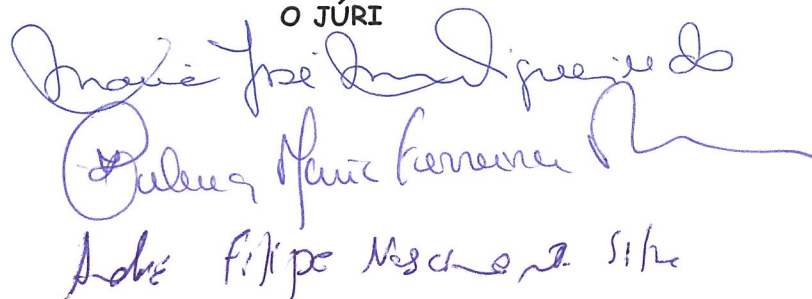 O JÚRI
Maria José Figueiredo
Maria Ferreira
André Filipe Nascimento Silva